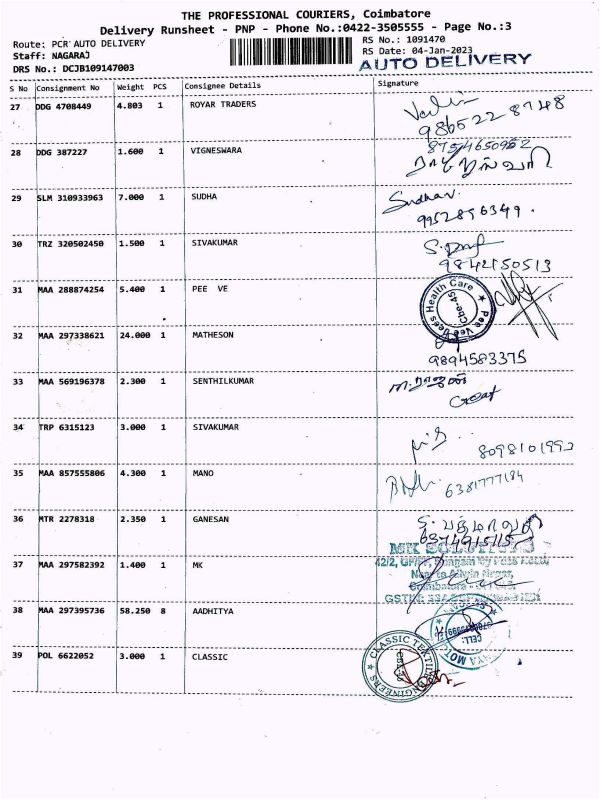 THE PROFESSIONAL COURIERS, Coimbatore
Delivery Runsheet - PNP - Phone No.:0422-3505555 - Page No.:3
Route: PCR AUTO DELIVERY
RS No.: 1091470
Staff: NAGARAJ
RS Date: 04-Jan-2023
DRS No.: DCJB109147003
AUTO DELIVERY
S No Consignment No Weight PCS Consignee Details Signature
27 DDG 4708449 4.803 1 ROYAR TRADERS
986522 8748
28 DDG 387227 1.600 1 VIGNESWARA
8754650952
29 SLM 310933963 7.000 1 SUDHA
9952896349.
30 TRZ 320502450 1.500 1 SIVAKUMAR
9842150513
31 MAA 288874254 5.400 1 PEE VE
Pee Vee Bees Health Care
Cbe-45
32 MAA 297338621 24.000 1 MATHESON
9894583375
33 MAA 569196378 2.300 1 SENTHILKUMAR
34 TRP 6315123 3.000 1 SIVAKUMAR
8098101992
35 MAA 857555806 4.300 1 MANO
6381777184
36 MTR 2278318 2.350 1 GANESAN
6374915115
37 MAA 297582392 1.400 1 MK
38 MAA 297395736 58.250 8 AADHITYA
CELL:
39 POL 6622052 3.000 1 CLASSIC
CLASSIC TEXTILE ENGINEERS